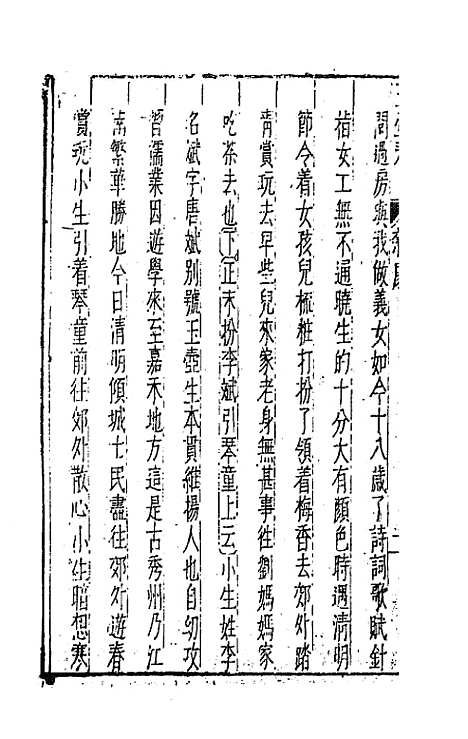 問過房與我做義女如今十八歲了詩詞歌賦針
指女工無不通曉生的十分大有顏色時遇清明
節令着女孩兒梳粧打扮了領着梅香去郊外踏
青賞玩去早些兒來家老身無甚事徃劉媽媽家
吃茶去也下正末扮李斌引琴童上云小生姓李
名斌字唐斌别號玉壺生本貫維揚人也自幼攻
習儒業因遊學來至嘉禾地方這是古秀州乃江
南繁華勝地今日清明傾城士民盡往郊外遊春
賞玩小生引着琴童前往郊外散心小生暗想寒